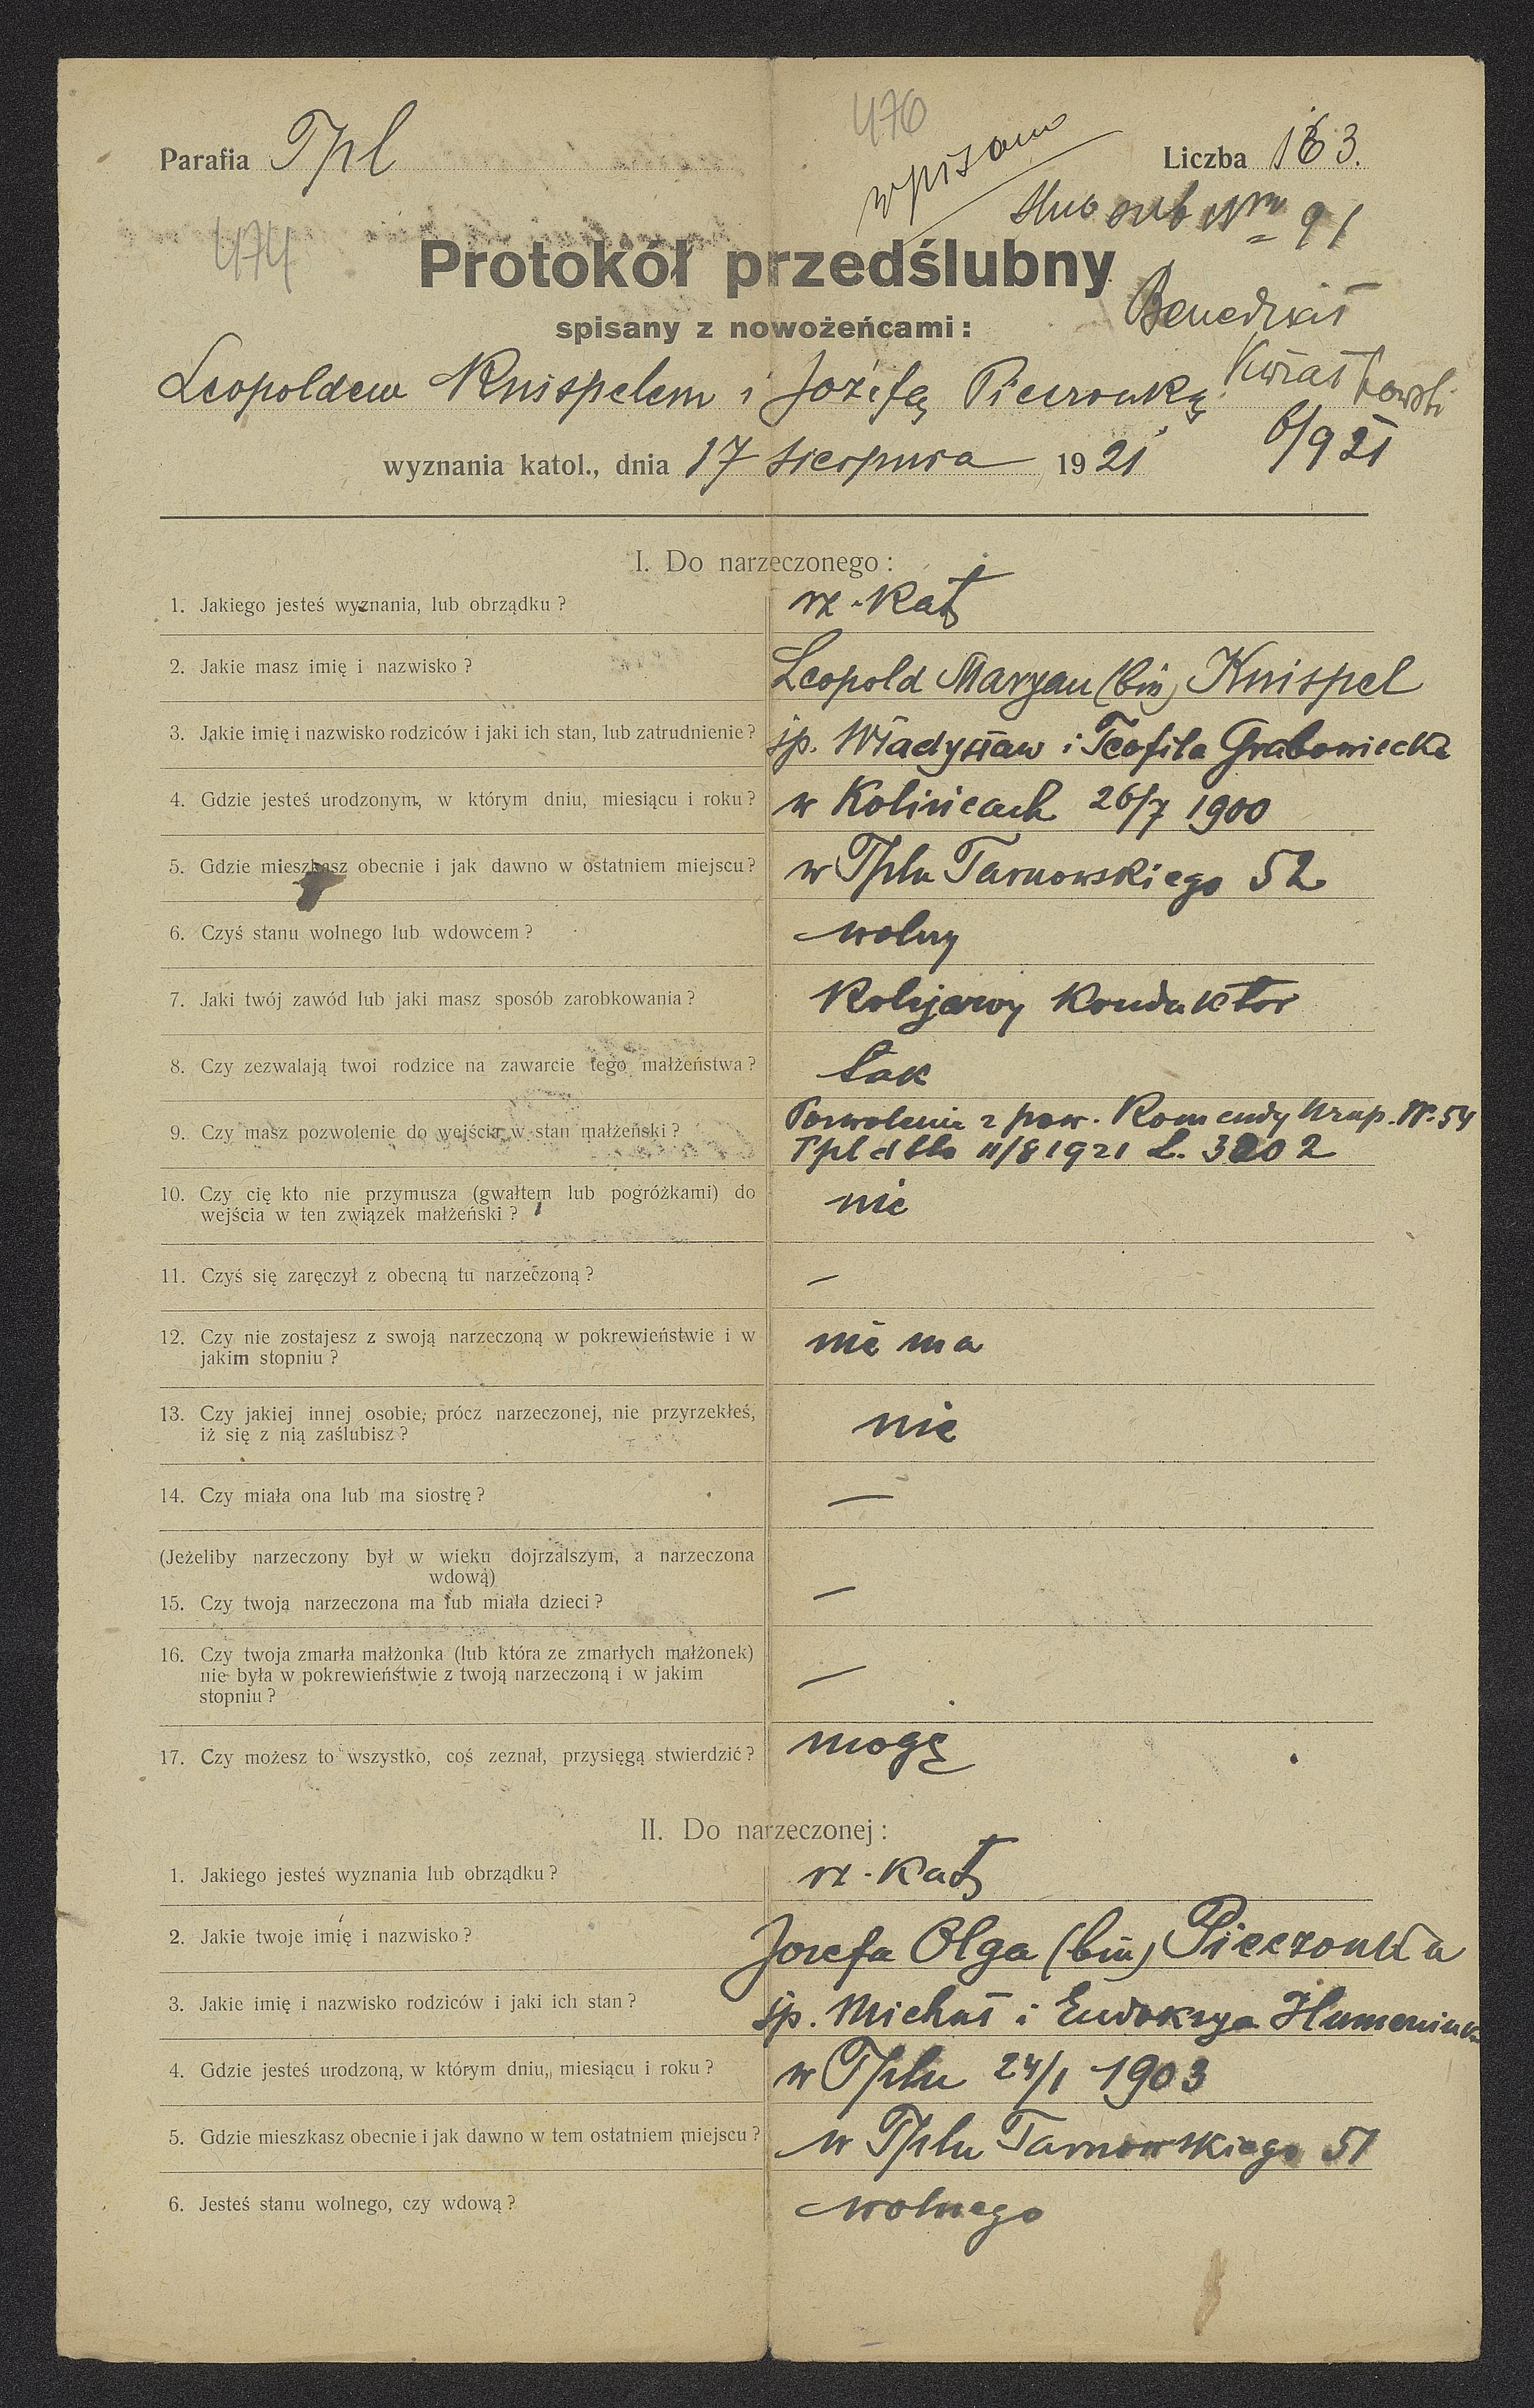 476
Parafia Tpl
wpisano
Liczba 163.
ślub sub Nrm 91
474
Protokół przedślubny
Benedykt
spisany z nowożeńcami:
Kwiatkowski
Leopoldem Knispelem i Józefą Pieczonką
6/9 21
wyznania katol., dnia 17 sierpnia 1921
I. Do narzeczonego:
1. Jakiego jesteś wyznania, lub obrządku? rz. kat
2. Jakie masz imię i nazwisko? Leopold Maryan (bin) Knispel
3. Jakie imię i nazwisko rodziców i jaki ich stan, lub zatrudnienie? śp. Władysław i Teofila Grabowiecka
4. Gdzie jesteś urodzonym, w którym dniu, miesiącu i roku? w Kolińcach 26/7 1900
5. Gdzie mieszkasz obecnie i jak dawno w ostatniem miejscu? w Tplu Tarnowskiego 52
6. Czyś stanu wolnego lub wdowcem? wolny
7. Jaki twój zawód lub jaki masz sposób zarobkowania? Kolejowy konduktor
8. Czy zezwalają twoi rodzice na zawarcie tego małżeństwa? tak
9. Czy masz pozwolenie do wejścia w stan małżeński? Pozwolenie z pow. Komendy Uzup. N. 54
Tpl dtto 11/8 1921 L. 3202
10. Czy cię kto nie przymusza (gwałtem lub pogróżkami) do
wejścia w ten związek małżeński? nie
11. Czyś się zaręczył z obecną tu narzeczoną? —
12. Czy nie zostajesz z swoją narzeczoną w pokrewieństwie i w
jakim stopniu? nie ma
13. Czy jakiej innej osobie, prócz narzeczonej, nie przyrzekłeś,
iż się z nią zaślubisz? nie
14. Czy miała ona lub ma siostrę? —
(Jeżeliby narzeczony był w wieku dojrzalszym, a narzeczona
wdową)
15. Czy twoja narzeczona ma lub miała dzieci? —
16. Czy twoja zmarła małżonka (lub która ze zmarłych małżonek)
nie była w pokrewieństwie z twoją narzeczoną i w jakim
stopniu? —
17. Czy możesz to wszystko, coś zeznał, przysięgą stwierdzić? mogę
II. Do narzeczonej:
1. Jakiego jesteś wyznania lub obrządku? rz. kat
2. Jakie twoje imię i nazwisko? Józefa Olga (bin) Pieczonka
3. Jakie imię i nazwisko rodziców i jaki ich stan? śp. Michał i Eudoksya Humeniuk
4. Gdzie jesteś urodzoną, w którym dniu, miesiącu i roku? w Tplu 24/1 1903
5. Gdzie mieszkasz obecnie i jak dawno w tem ostatniem miejscu? w Tplu Tarnowskiego 51
6. Jesteś stanu wolnego, czy wdową? wolnego